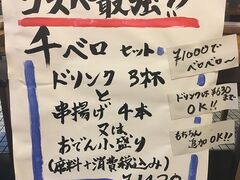 コスパ最強!!
千ベロ セット
ドリンク 3杯
と
串揚げ 4本
又は
おでん小盛り
(席料+消費税込み)
¥1000で
ベロベロ〜
ドリンクは¥630まで
OK!!
もちろん
追加OK!!